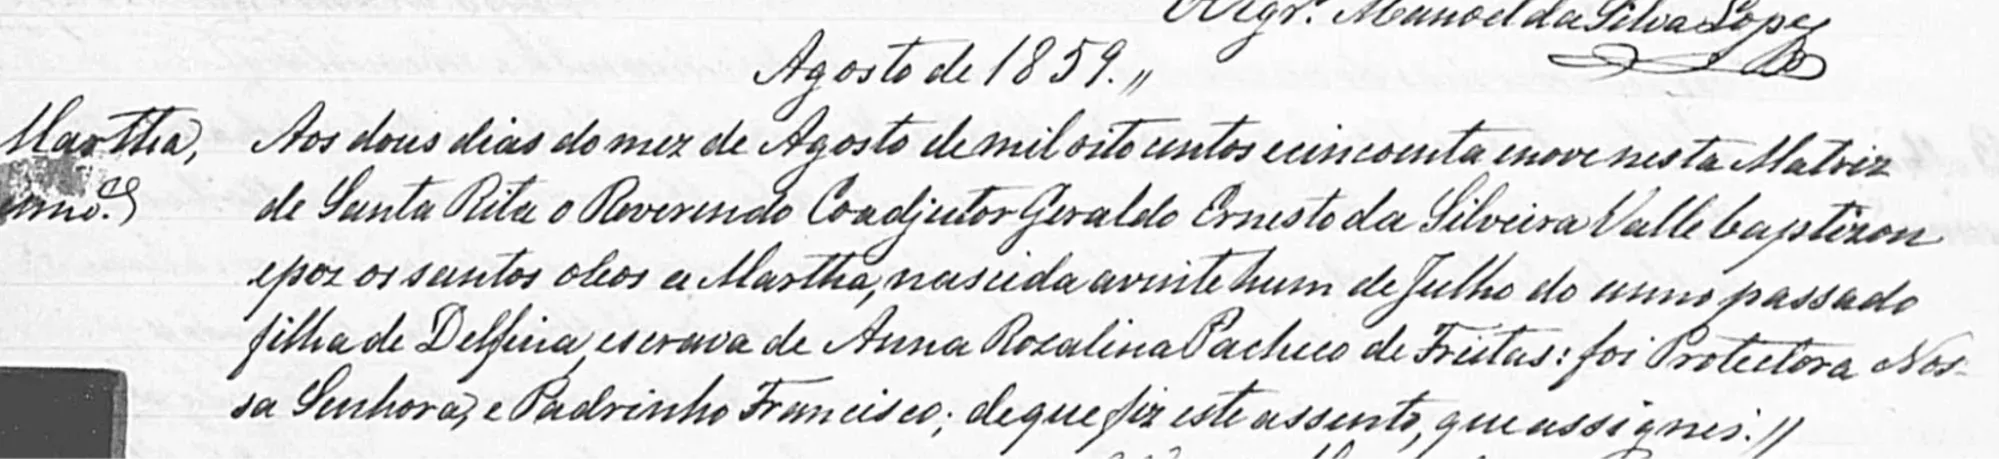 Vigr.º Manoel da Silva Lopes
Agosto de 1859.,,
Martha, Aos dous dias do mez de Agosto de mil oito centos e cincoenta e nove nesta Matriz
de Santa Rita o Reverendo Coadjutor Geraldo Ernesto da Silveira Valle baptizou
e poz os santos oleos a Martha, nascida a vinte hum de Julho do anno passado
filha de Delfina, escrava de Anna Rozalina Pacheco de Freitas: foi Protectora Nos-
sa Senhora, e Padrinho Francisco; de que fiz este assento, que assignei.//